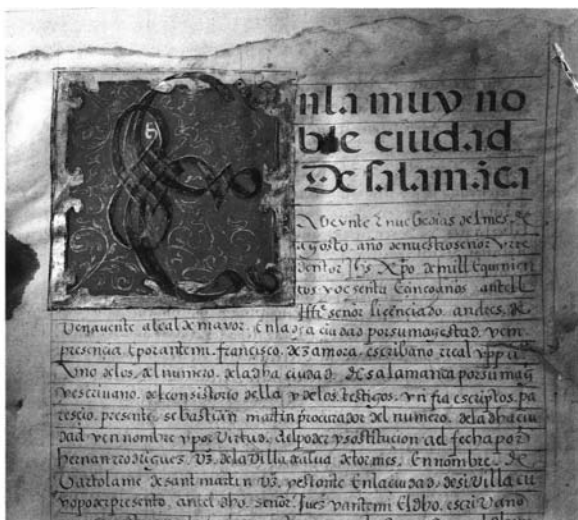 Enla muy no
ble ciudad
De salamāca
A veynte E nueBe dias del mes, de
agosto. año de nuestro señor y rre
dentor Jhs xpo. de mill E quinien
tos y ochenta E un años antell
señor licençiado andres, de
Venavente alcalde mayor. Enla dha ciudad por su magestad. y en
presencia E por ante mi. francisco. de zamora, escribano rreal y pp
uno delos. del numero. dela dha ciudad. de salamanca por su mag
y escrivano. del consistorio della y delos testigos. yn fia escriptos. pa
resçio. presente. sebastian martin procurador del numero. dela dha ciu
dad y en nombre y por Virtud. del poder y sostitucion ael fecha por
hernan rrodrigues Vz. dela Villa de alva de tormes. En nombre. de
Bartolame de sant martin Vz. En la ciudad, de siVilla cu
yo poder presento. antel dho. señor. Juez y ante mi El dho. escriVano